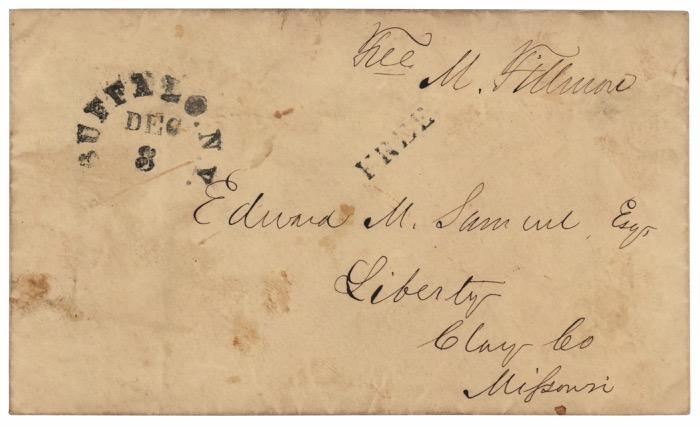 Free M. Fillmore
BUFFALO N.Y.
DEC
8
FREE
Edward M. Samuel Esqr
Liberty
Clay Co
Mißouri